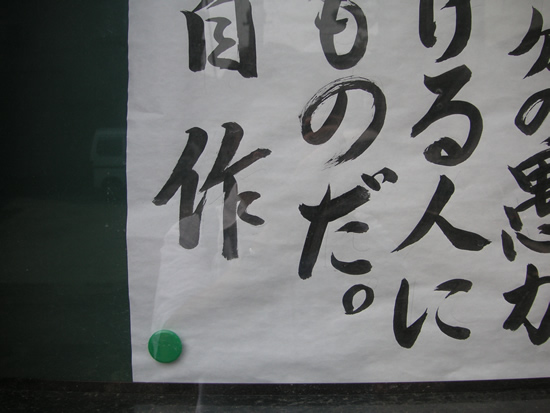 の悪か
ける人に
ものだ。
自作